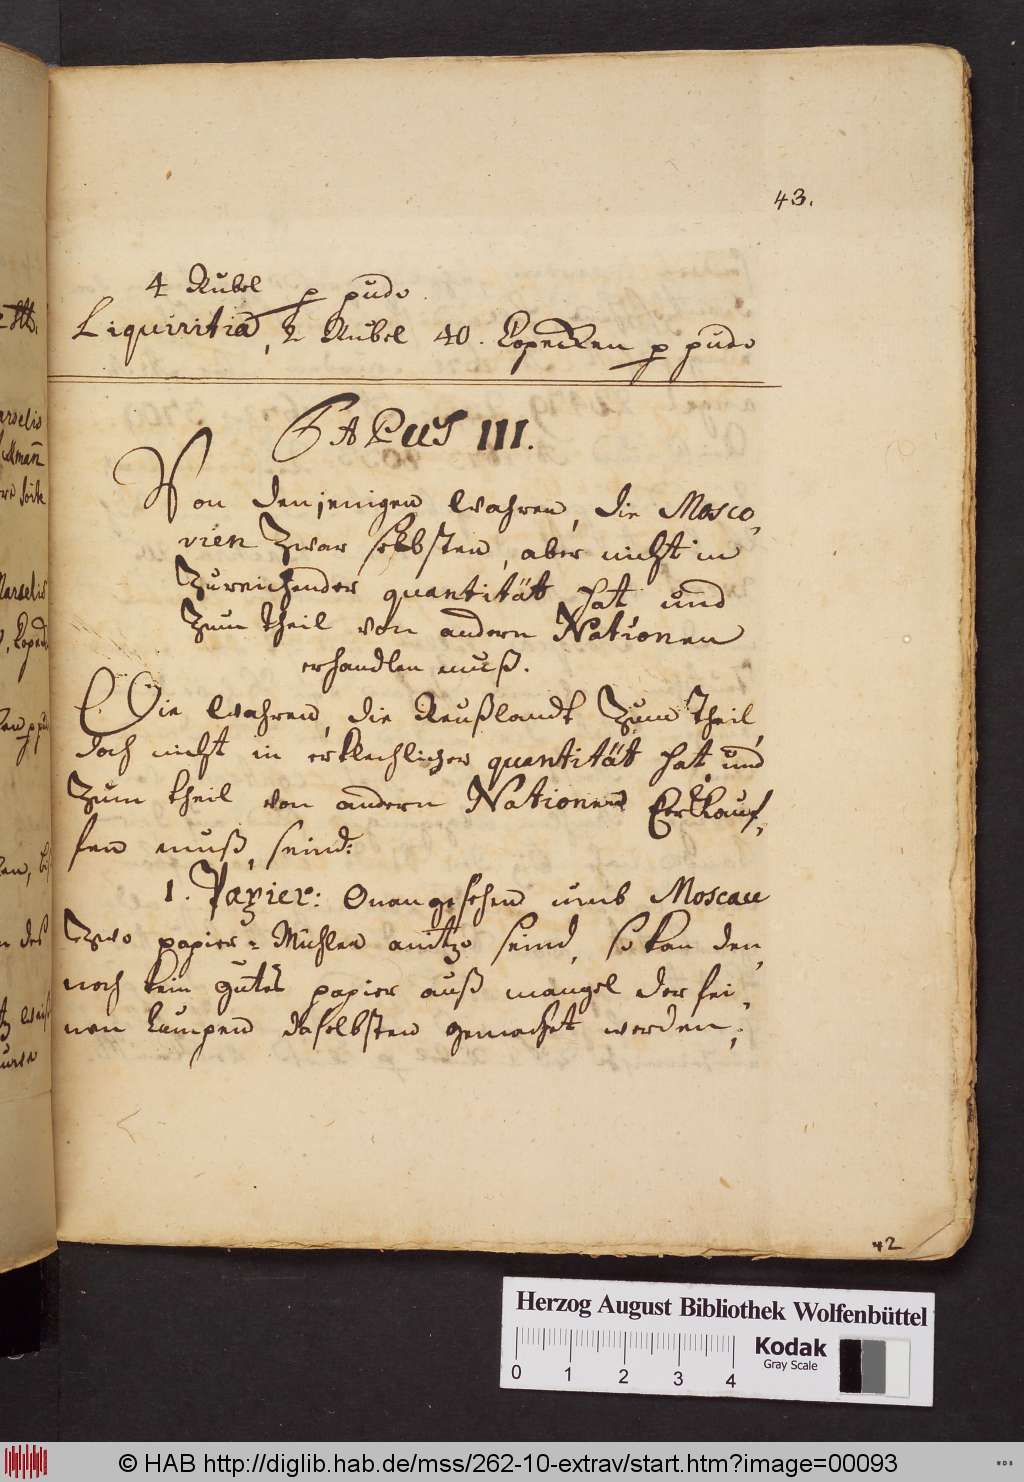 43.
4 Rubel p pudo.
Liquiritia, 2 Rubel 40. Copecken p pudo
CAPUT III.
Von denjenigen Wahren, die Mosco,
vien zwar selbsten, aber nicht in
zureichender quantität hat und
zum theil von andern Nationen
erhandlen muß.
Die Wahren, die Reußlandt zum theil,
doch nicht in erklechlicher quantität hat und
zum theil von andern Nationen Erkauf,
fen muß, seind:
1. Papier: Onangesehen umb Moscau
zwo papier=Mühlen anitzo seind, so kan den,
noch kein gutes papier auß mangel der fei,
nen Lumpen daselbsten gemachet werden;
42
Marselis
Marselis
Herzog August Bibliothek Wolfenbüttel
0 1 2 3 4
Kodak
Gray Scale
© HAB http://diglib.hab.de/mss/262-10-extrav/start.htm?image=00093